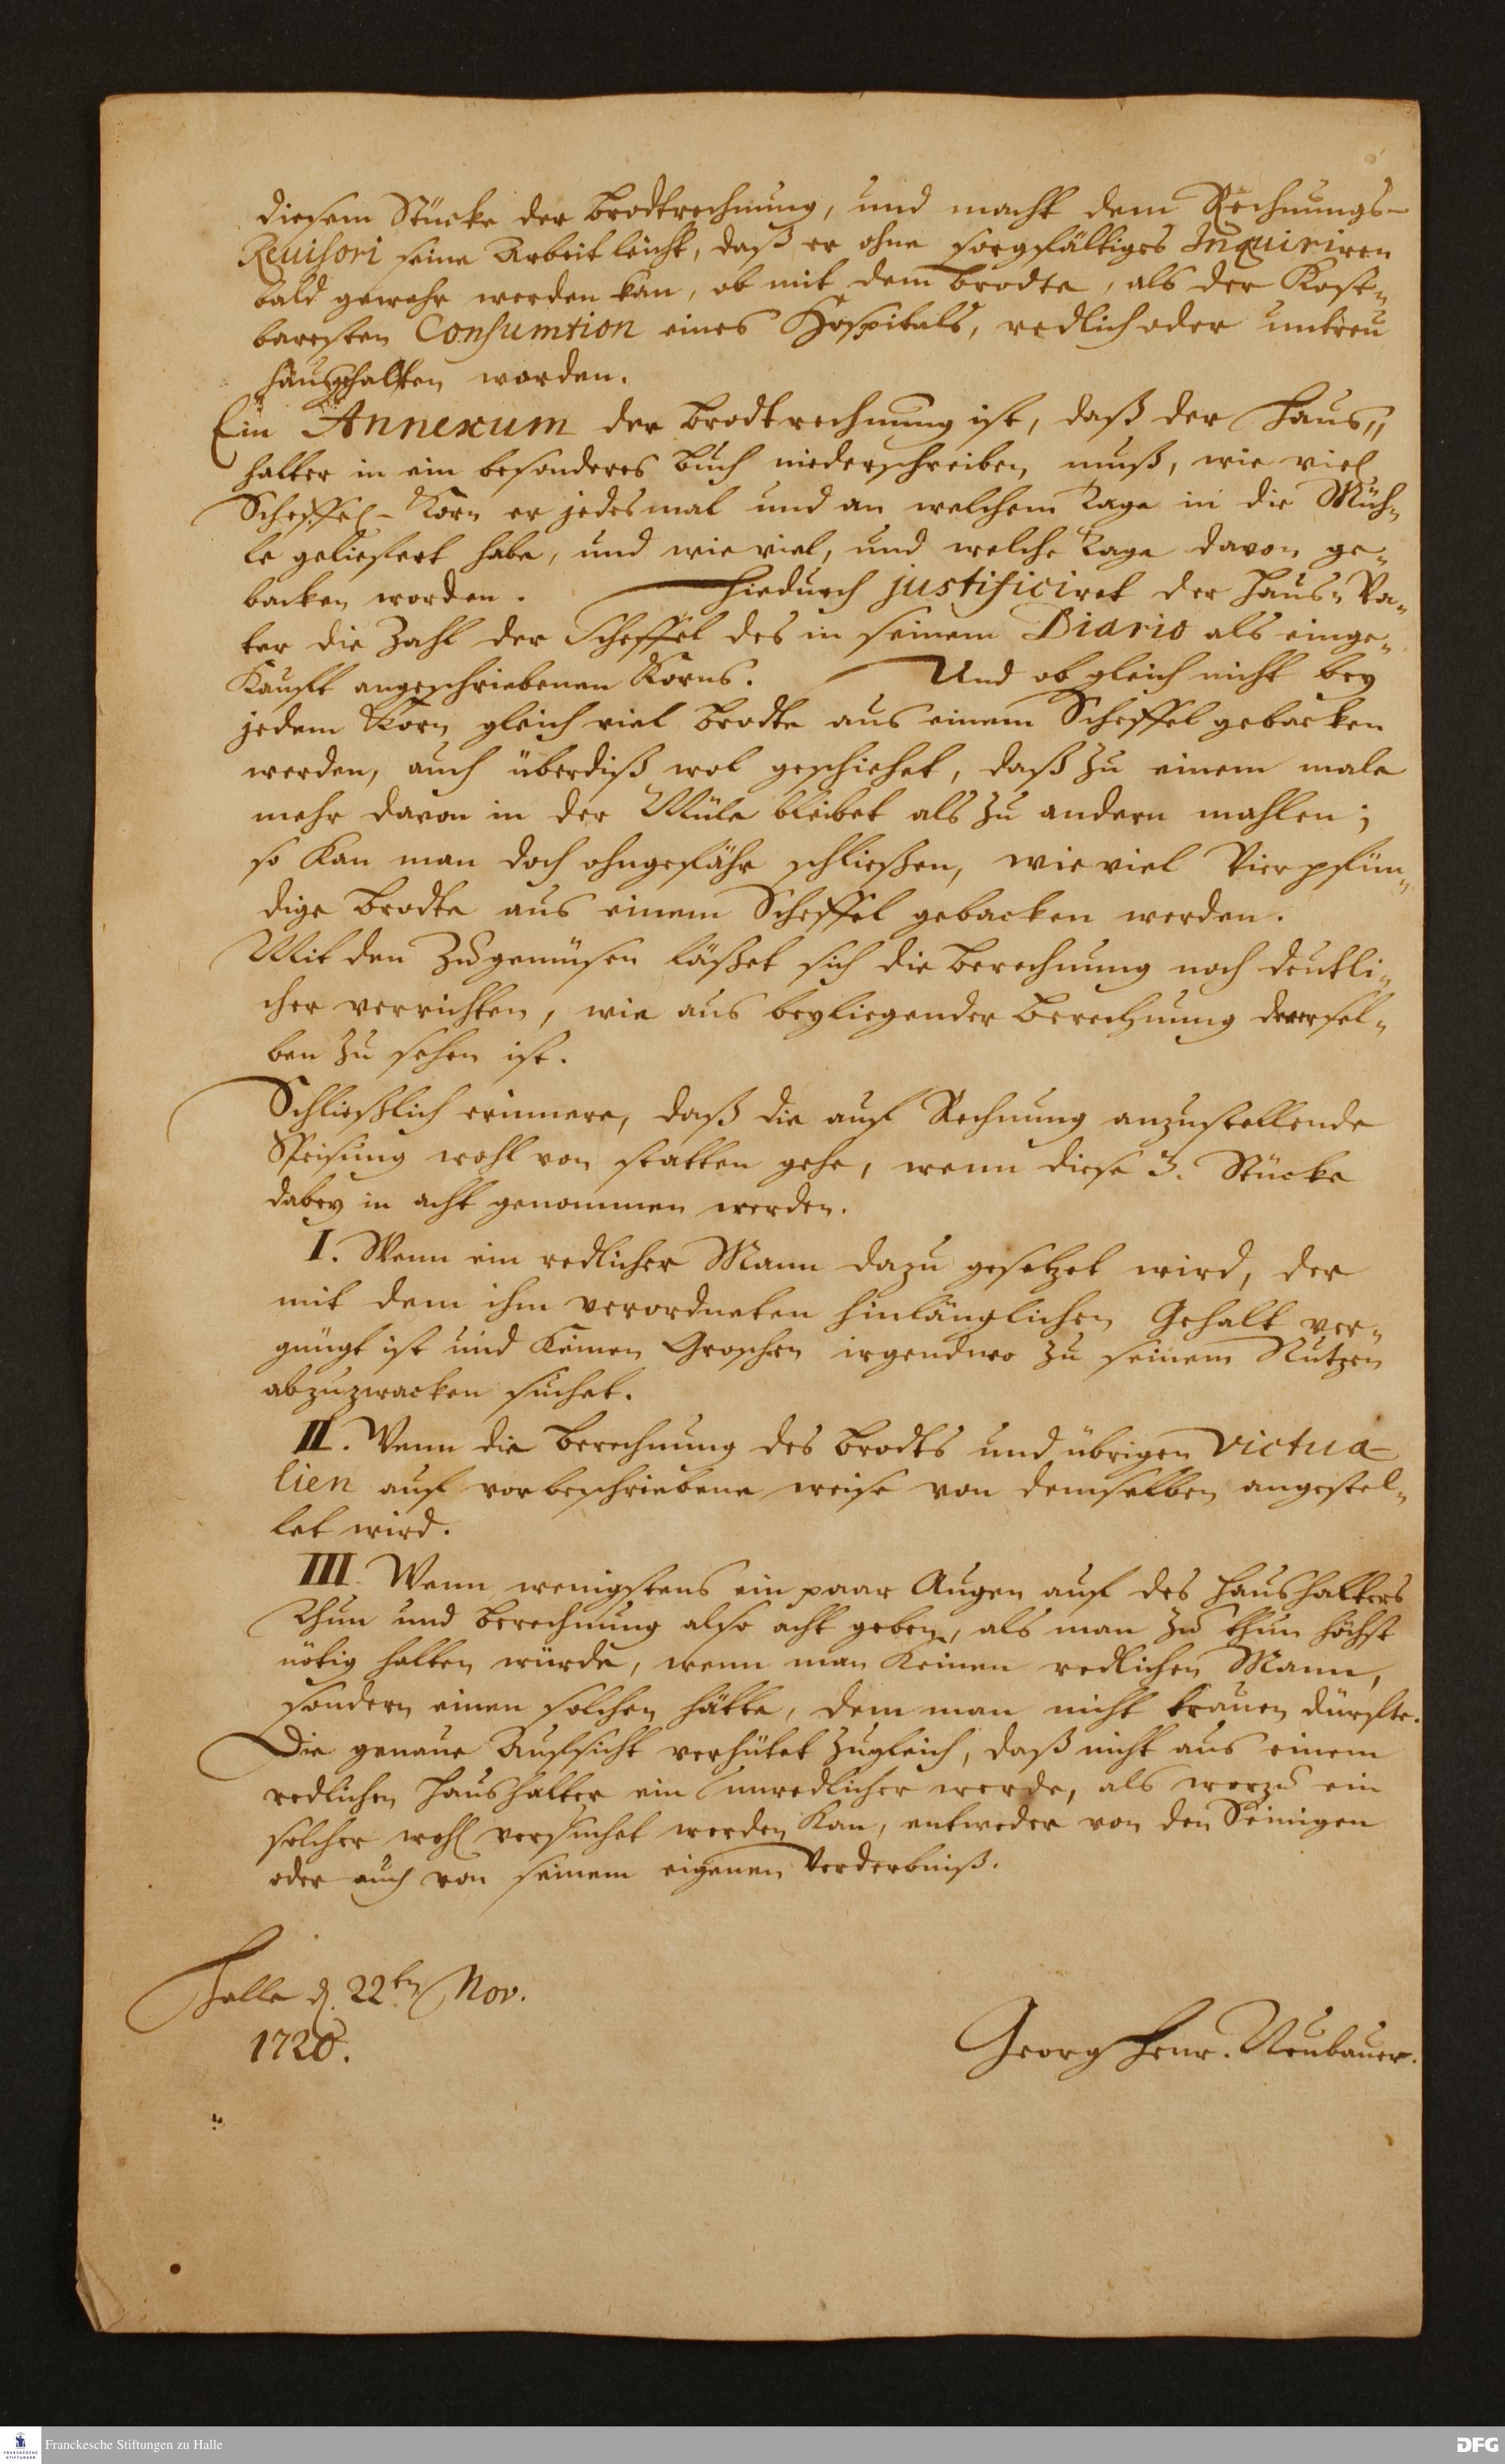 diesem Stücke der Brodtrechnung, und macht dem Rechnungs-
Revisori seine Arbeit leicht, daß er ohne sorgfältiges Inquiriren
bald gewahr werden kan, ob mit dem Brodte, als der Kost-
baresten Consumtion eines Hospitals, redlich oder untreu
hausgehalten worden.
Ein Annexum der Brodtrechnung ist, daß der Haus-
halter in ein besonderes Buch niederschreiben muß, wie viel
Scheffel-Korn er jedesmal und an welchem Tage in die Müh-
le geliefert habe, und wie viel, und welche Tage davon ge-
backen worden. Hiedurch justificiret der Haus-Va-
ter die Zahl der Scheffel des in seinem Diario als einge-
Kauft angeschriebenen Korns. Und ob gleich nicht bey
jedem Korn gleich viel Brodte aus einem Scheffel gebacken
werden, auch überdiß wol geschiehet, daß zu einem male
mehr davon in der Müle bleibet als zu andern mahlen;
so kan man doch ohngefähr schließen, wie viel Vierpfün-
dige Brodte aus einem Scheffel gebacken werden.
Mit den Zugemüsen läßet sich die Berechnung noch deutli-
cher verrichten, wie aus beyliegender Berechnung dersel-
ben zu sehen ist.
Schließlich erinnere, daß die auf Rechnung anzustellende
Speisung wohl von statten gehe, wenn diese 3. Stücke
dabey in acht genommen werden.
I. Wenn ein redlicher Mann dazu gesetzet wird, der
mit dem ihm verordneten hinlänglichen Gehalt ver-
gnügt ist und keinen Groschen irgendwo zu seinem Nutzen
abzuzwacken suchet.
II. Wenn die Berechnung des Brodts und übrigen Victua-
lien auf vorbeschriebene weise von demselben angestel-
let wird.
III. Wenn wenigstens ein paar Augen auf des Haushalters
Thun und Berechnung also acht geben, als man zu thun höchst
nötig halten würde, wenn man keinen redlichen Mann,
sondern einen solchen hätte, dem man nicht trauen dürfte.
Die genaue Aufsicht verhütet zugleich, daß nicht aus einem
redlichen Haushalter ein unredlicher werde, als worzu ein
solcher wohl versuchet werden kan, entweder von den Seinigen
oder auch von seinem eigenen Verderbniß.
Halle d. 22ten Nov.
1720.
Georg Henr. Neubauer.
FRANCKESCHE STIFTUNGEN
Franckesche Stiftungen zu Halle
DFG